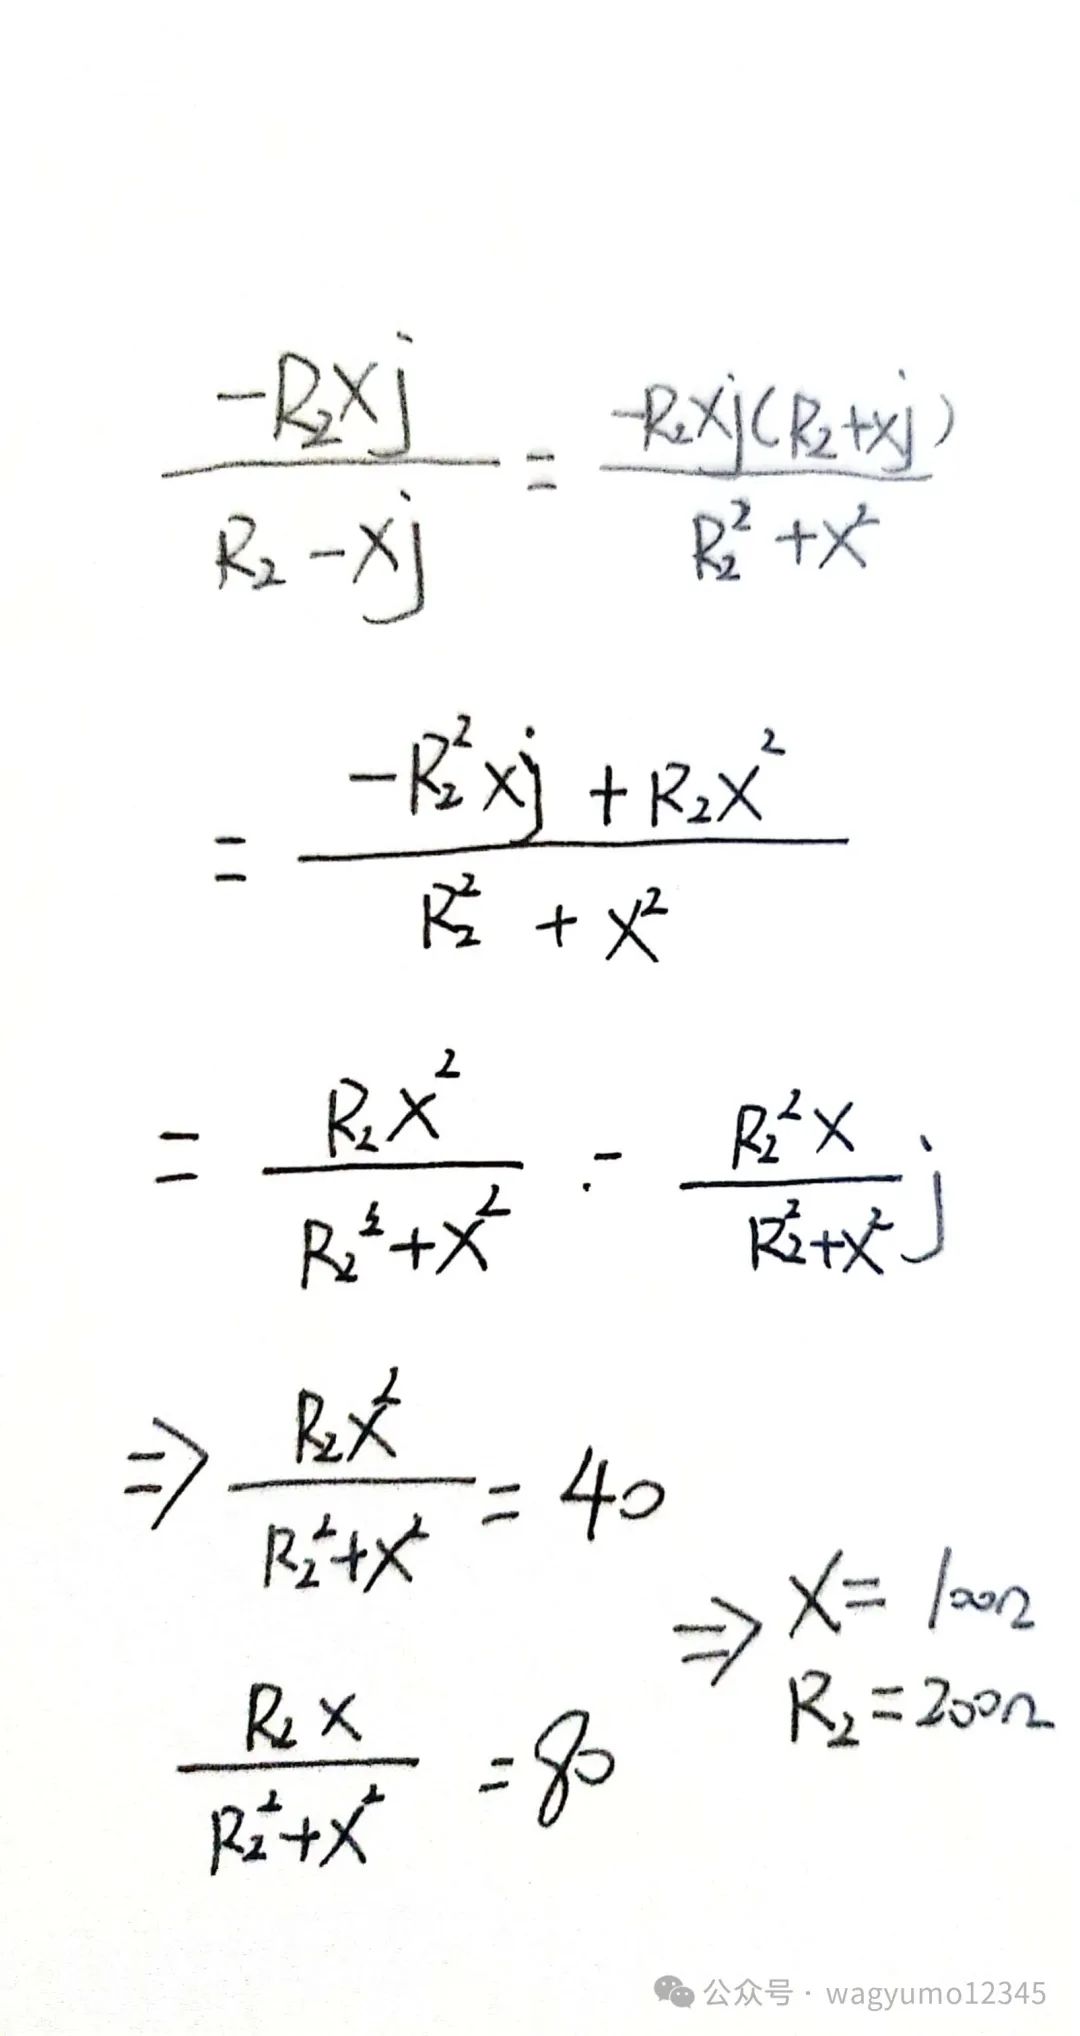 -R₂Xj / (R₂ - Xj) = -R₂Xj(R₂+Xj) / (R₂² + X²)
= (-R₂²Xj + R₂X²) / (R₂² + X²)
= R₂X² / (R₂² + X²) - R₂²X / (R₂² + X²) j
⇒ R₂X² / (R₂² + X²) = 40
R₂X / (R₂² + X²) = 80
⇒ X = 100Ω
R₂ = 200Ω
公众号 · wagyumo12345